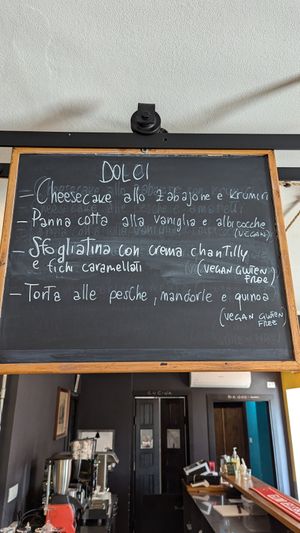 DOLCI
- Cheesecake allo zabajone e krumiri
- Panna cotta alla vaniglia e albicocche
(VEGAN)
- Sfogliatina con crema chantilly
e fichi caramellati (VEGAN GLUTEN
FREE)
- Torta alle pesche, mandorle e quinoa
(VEGAN GLUTEN
FREE)